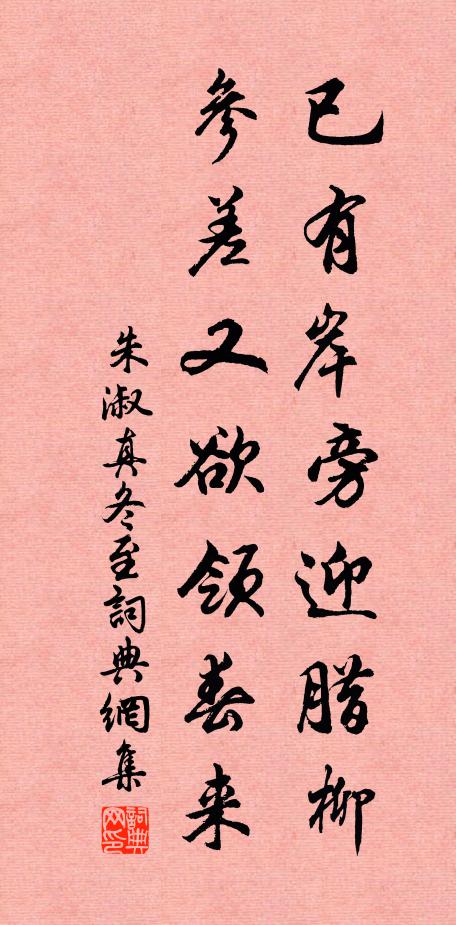 已有岸旁迎腊柳
参差又欲领春来
朱淑真冬至詞典網集
詞典网印